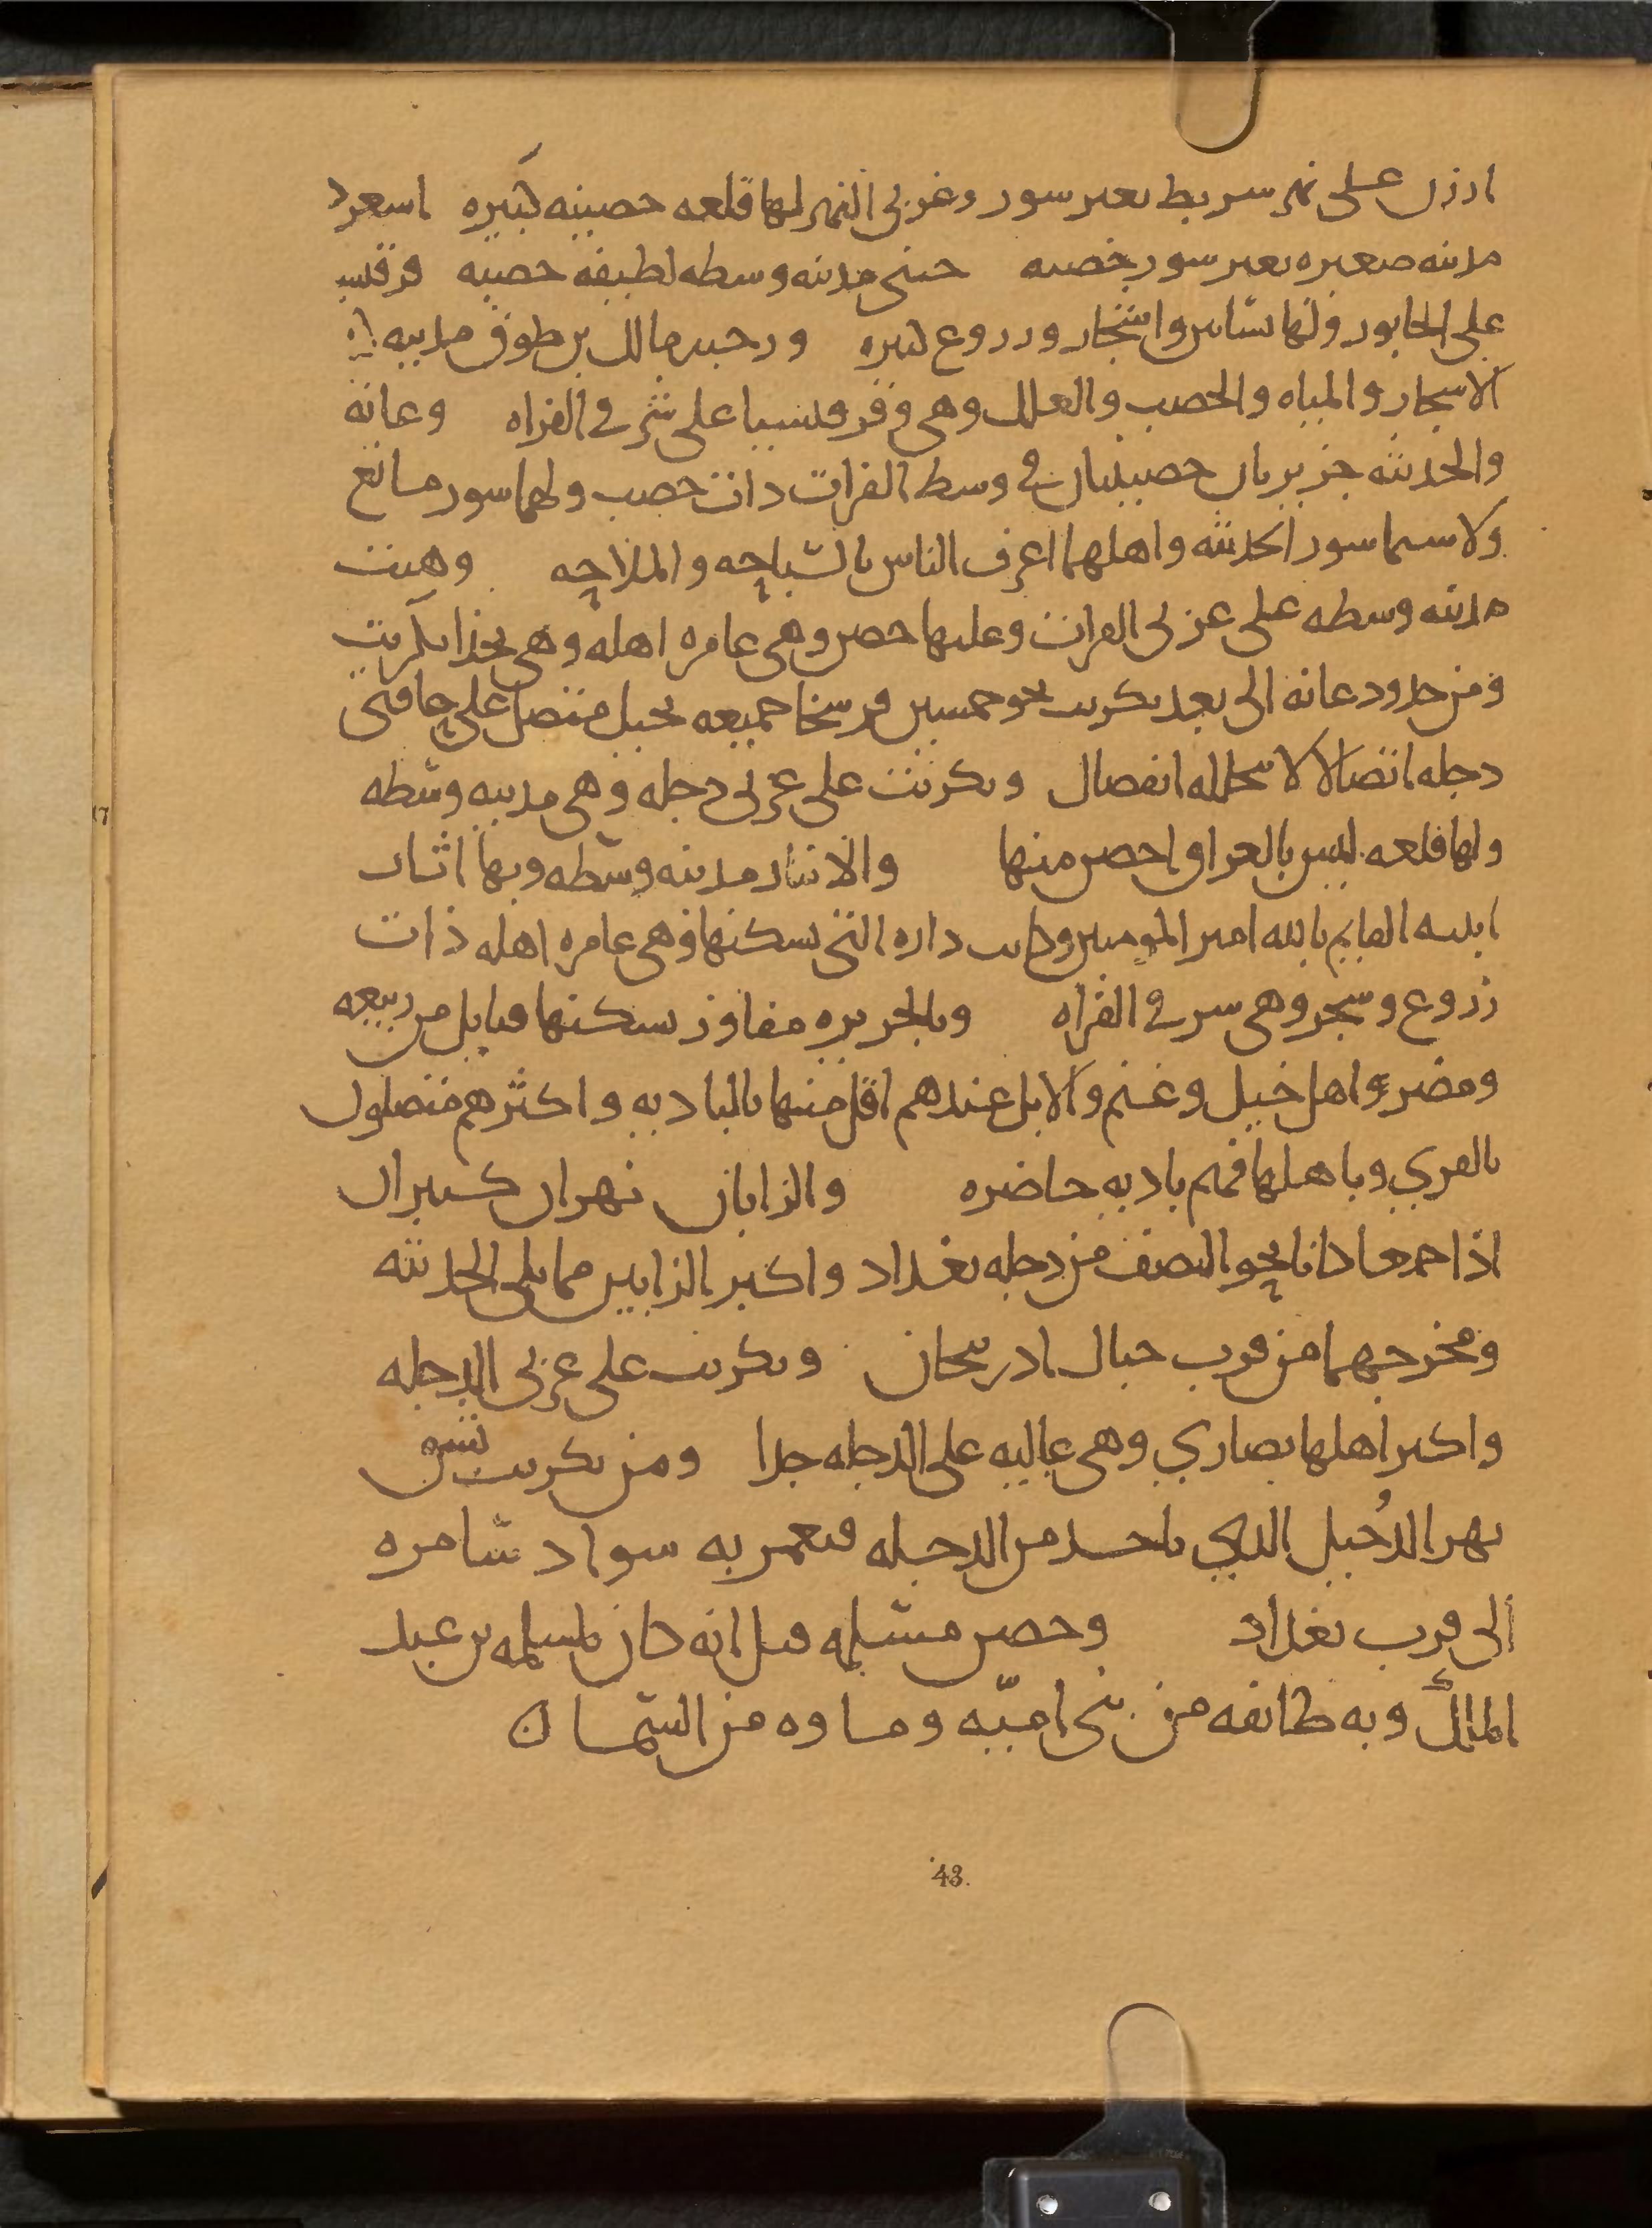 ارزن على نهر سربط بغير سور وغربي النهر لها قلعه حصينه كبيره اسعرد
مدينه صغيره بغير سور خصبه حنى مدينه وسطه لطيفه خصبه قرقيسيا
على الخابور ولها بساتين واشجار وزروع كثيره ورحبه مالك بن طوق مدينه
الاشجار والمياه والخصب والغلل وهي وقرقيسيا على شرقي الفراه وعانه
والحديثه جزيرتان حصينتان في وسط الفرات ذات خصب ولهما سور مانع
ولا سيما سور الحديثه واهلهما اعرف الناس بالسباحه والملاحه وهيت
مدينه وسطه على غربي الفرات وعليها حصن وهي عامره اهله وهي بحذا تكريت
ومن حدود عانه الى بعد تكريت نحو خمسين فرسخا جميعه بجبل متصل على حافتي
دجله اتصالا لا يتخلله انفصال وتكريت على غربي دجله وهي مدينه وسطه
ولها قلعه ليس بالعراق احصن منها والانبار مدينه وسطه وبها اثار
ابنيه القايم بالله امير المومنين وكانت داره التي يسكنها وهي عامره اهله ذات
زروع وشجر وهي شرقي الفراه وبالجزيره مفاوز يسكنها قبايل من ربيعه
ومضر واهل خيل وغنم والابل عندهم اقل منها بالباديه واكثرهم متصلون
بالقري وباهلها فهم باديه حاضره والزابان نهران كبيران
اذا جمعا كانا نحو النصف من دجله بغداد واكبر الزابين مما يلي الحديثه
ومخرجهما من قرب جبال ادربيجان وتكريت على غربي الدجله
واكبر اهلها نصاري وهي عاليه على الدجله جدا ومن تكريت يشق
نهر الدُجيل الذي ياخذ من الدجله فيعمر به سواد سامره
الى قرب بغداد وحصن مسلمه قيل انه كان لمسلمه بن عبد
الملك وبه طائفه من بني اميّه وماوه من السما ن
43.